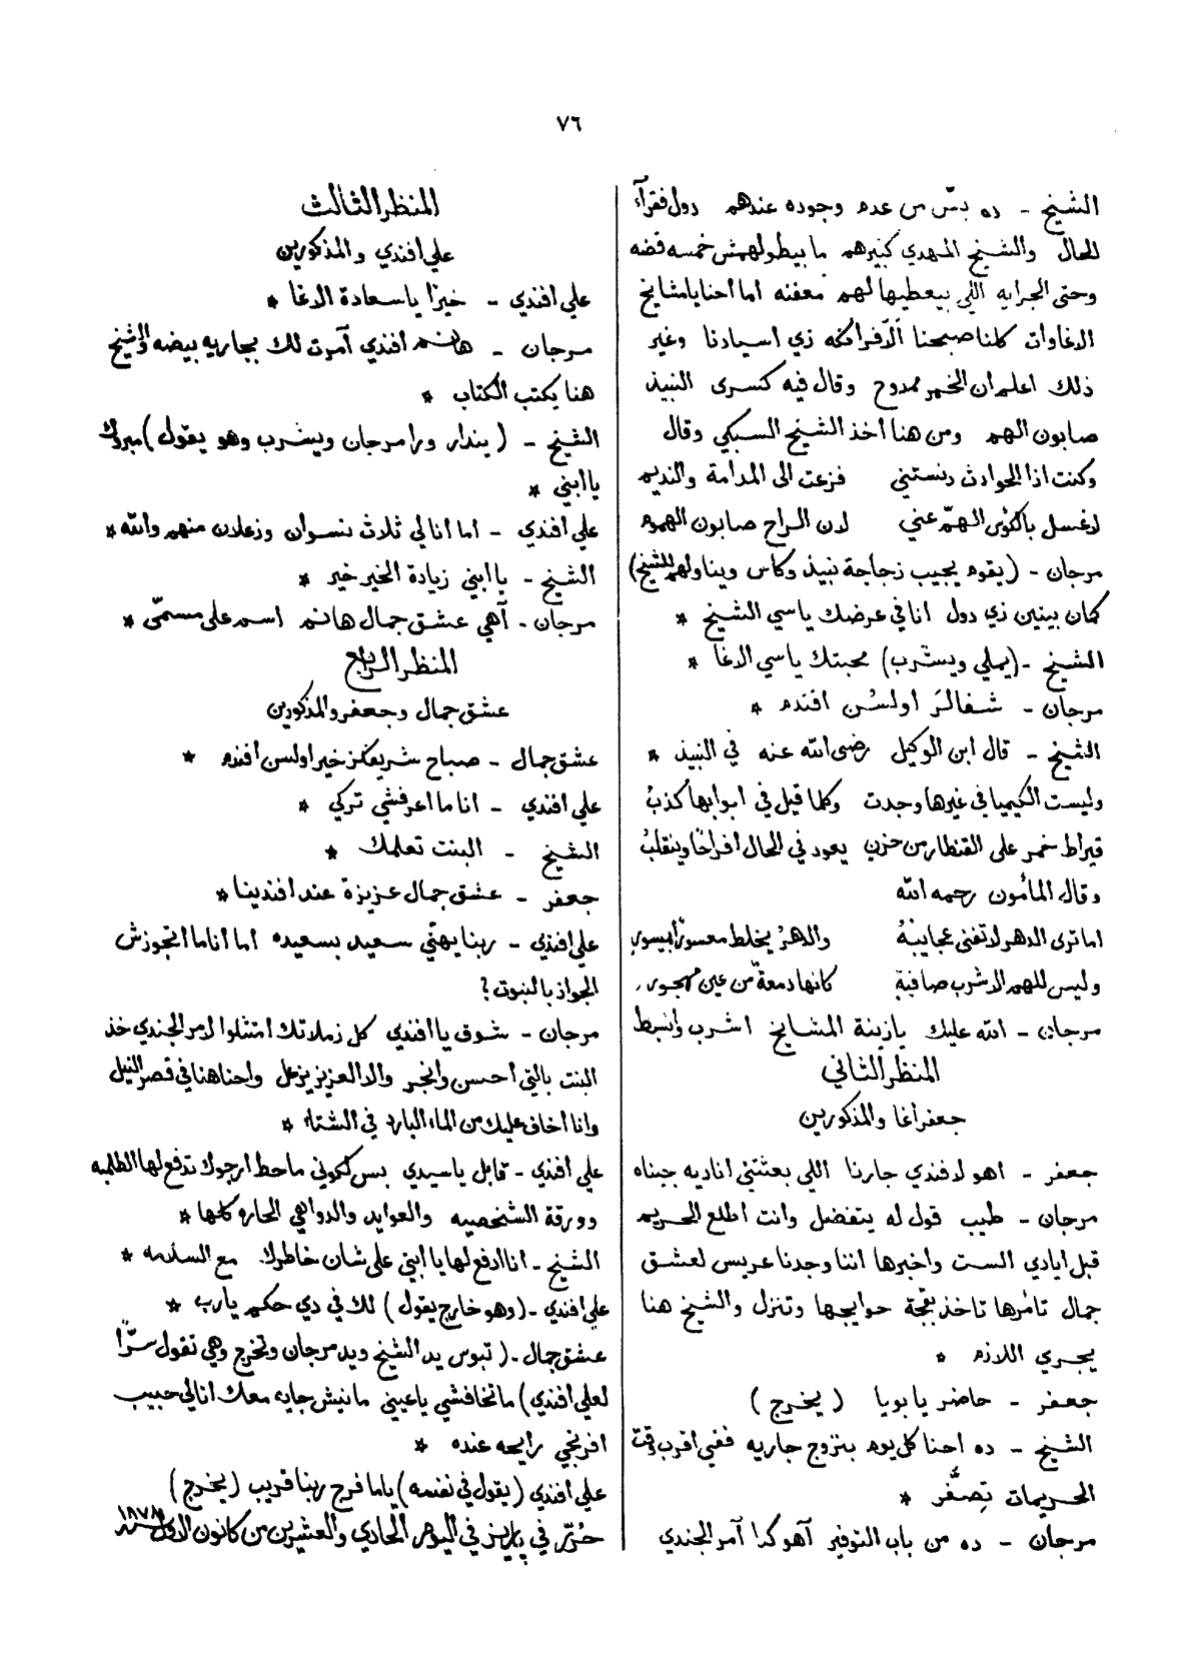 ٧٦
الشيخ - ده بسّ من عدم وجوده عندهم دول فقرآء
الحال والشيخ المهدي كبيرهم ما بيطولهمش خمسه فضه
وحتى الجرايه اللي بيعطيها لهم معفنه اما احنا يا مشايخ
الاغاوات كلنا صبحنا ألافرانكه زي اسيادنا وغير
ذلك اعلم ان الخمر ممدوح وقال فيه كسرى النبيذ
صابون الهم ومن هنا أخذ الشيخ السبكي وقال
وكنت اذا الحوادث دنستني فزعت الى المدامة والنديم
لاغسل بالكؤس الهمّ عني لان الراح صابون الهموم
مرجان - (يقوم يجيب زجاجة نبيذ وكاس ويناولهم للشيخ)
كمان بيتين زي دول انا في عرضك ياسي الشيخ *
الشيخ - (يملي ويشرب) محبتك ياسي الاغا *
مرجان - شفالر اولسُن افندم *
الشيخ - قال ابن الوكيل رضى الله عنه في النبيذ *
وليست الكيميا في غيرها وجدت وكلما قيل في ابوابها كذبُ
قيراط خمر على القنطار من حزن يعود في الحال أفراحًا وينقلبُ
وقال المأمون رحمه الله
اما ترى الدهر لا تفنى عجايبهُ والدهرُ يخلط معسورًا بميسور
وليس للهم الا شرب صافيةٍ كانها دمعةٌ من عين مهجور
مرجان - الله عليك يا زينة المشايخ اشرب وانبسط
المنظر الثاني
جعفر اغا والمذكورين
جعفر - اهو لافندي جارنا اللي بعثتني اناديه جبناه
مرجان - طيب قول له يتفضل وانت اطلع الحريم
قبل ايادي الست واخبرها اننا وجدنا عريس لعشق
جمال تأمرها تاخذ بقجة حوايجها وتنزل والشيخ هنا
يجري اللازم *
جعفر - حاضر يا بويا (يخرج)
الشيخ - ده احنا كل يوم بنزوج جاريه ففي اقرب وقت
الحريمات تِصفَّر *
مرجان - ده من باب التوفير آهو كدا آمر الجندي
المنظر الثالث
علي افندي والمذكورين
علي افندي - خيرًا يا سعادة الاغا *
مرجان - هانم افندي آمرت لك بجاريه بيضه والشيخ
هنا يكتب الكتاب *
الشيخ - (يندار ورا مرجان ويشرب وهو يقول) مبروك
يا ابني *
علي افندي - اما انا لي ثلاث نسوان وزعلان منهم والله *
الشيخ - يا ابني زيادة الخير خير *
مرجان - آهي عشق جمال هانم اسم على مسمّى *
المنظر الرابع
عشق جمال وجعفر والمذكورين
عشق جمال - صباح شريفكز خير اولسن افندم *
علي افندي - انا ما اعرفشي تركي *
الشيخ - البنت تعلمك *
جعفر - عشق جمال عزيزة عند افندينا *
علي افندي - ربنا يهنّي سعيد بسعيده اما انا ما اتجوزش
الجواز بالنبوت ؟
مرجان - شوف يا افندي كل زملاتك امتثلوا لامر الجندي خذ
البنت بالتي أحسن وانجر والا العزيز يزعل واحنا هنا في قصر النيل
وانا أخاف عليك من الماء البارد في الشتاء *
علي افندي - قابل يا سيدي بس لكوني ما حط ارجوك تدفع لها الطلبه
وورقة الشخصيه والعوايد والدواهي الحاره كلها *
الشيخ - انا ادفع لها يا ابني على شان خاطرك مع السلامه *
علي افندي - (وهو خارج يقول) لك في دي حكم يارب *
عشق جمال - (تبوس يد الشيخ ويد مرجان وتخرج وهي تقول سرًّا
لعلي افندي) ما تخافشي يا عيني مانيش جايه معك انا لي حبيب
افرنجي رايحه عنده *
علي افندي (يقول في نفسه) ياما فرج ربنا قريب (يخرج)
حُرّر في پاريز في اليوم الحادي والعشرين من كانون الاول سنة ١٨٧٨